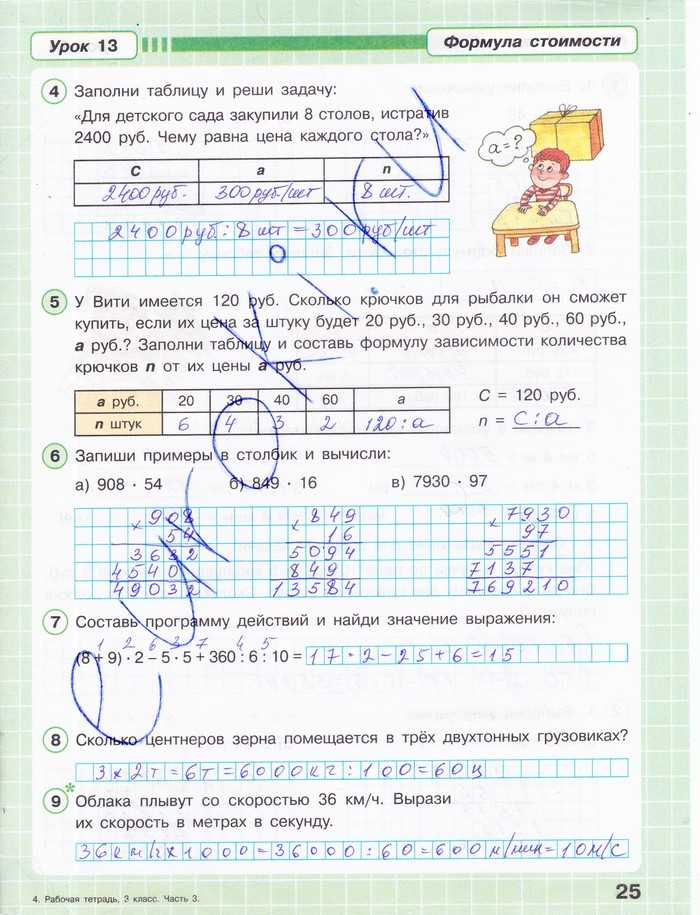 Урок 13
Формула стоимости
4 Заполни таблицу и реши задачу:
«Для детского сада закупили 8 столов, истратив
2400 руб. Чему равна цена каждого стола?»
a=?
C a n
2400 руб. 300 руб/шт 8 шт.
2400 руб. : 8 шт = 300 руб/шт
5 У Вити имеется 120 руб. Сколько крючков для рыбалки он сможет
купить, если их цена за штуку будет 20 руб., 30 руб., 40 руб., 60 руб.,
a руб.? Заполни таблицу и составь формулу зависимости количества
крючков n от их цены a руб.
a руб. 20 30 40 60 a
n штук 6 4 3 2 120:a
C = 120 руб.
n = C:a
6 Запиши примеры в столбик и вычисли:
а) 908 · 54 б) 849 · 16 в) 7930 · 97
×908 ×849 ×7930
54 16 97
3632 5094 5551
4540 849 7137
49032 13584 769210
7 Составь программу действий и найди значение выражения:
1 2 6 3 7 4 5
(8 + 9) · 2 – 5 · 5 + 360 : 6 : 10 = 17·2-25+6=15
8 Сколько центнеров зерна помещается в трёх двухтонных грузовиках?
3×2т=6т=6000кг:100=60ц
9* Облака плывут со скоростью 36 км/ч. Вырази
их скорость в метрах в секунду.
36км/ч×1000=36000:60=600м/мин=10м/с
4. Рабочая тетрадь, 3 класс. Часть 3.
25